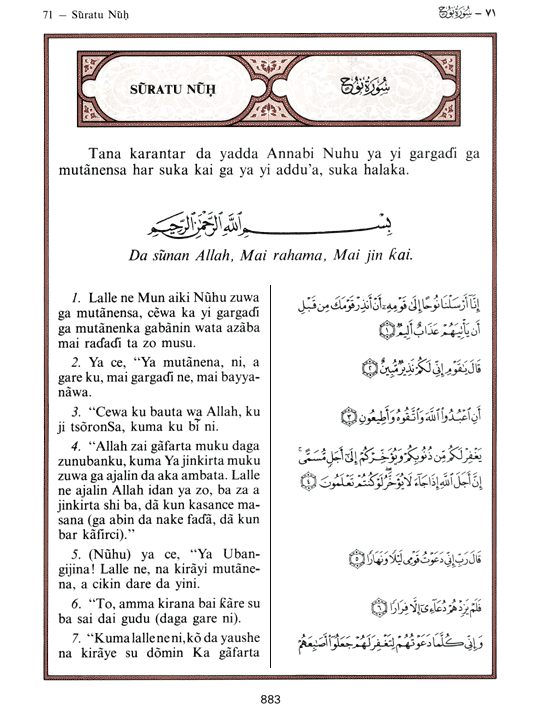 71 — Sūratu Nūḥ
٧١ — سُورَةُ نُوحٍ
SŪRATU NŪḤ
سُورَةُ نُوحٍ
Tana karantar da yadda Annabi Nuhu ya yi gargaɗi ga
mutãnensa har suka kai ga ya yi addu'a, suka halaka.
بِسْمِ اللَّهِ الرَّحْمَٰنِ الرَّحِيمِ
Da sũnan Allah, Mai rahama, Mai jin ƙai.
1. Lalle ne Mun aiki Nũhu zuwa
ga mutãnensa, cẽwa ka yi gargaɗi
ga mutãnenka gabãnin wata azãba
mai raɗaɗi ta zo musu.
2. Ya ce, “Ya mutãnena, ni, a
gare ku, mai gargaɗi ne, mai bayya-
nãwa.
3. “Cewa ku bauta wa Allah, ku
ji tsõronSa, kuma ku bĩ ni.
4. “Allah zai gãfarta muku daga
zunubanku, kuma Ya jinkirta muku
zuwa ga ajalin da aka ambata. Lalle
ne ajalin Allah idan ya zo, ba za a
jinkirta shi ba, dã kun kasance ma-
sana (ga abin da nake faɗã, dã kun
bar kãfirci).”
5. (Nũhu) ya ce, “Ya Uban-
gijina! Lalle ne, na kirãyi mutãne-
na, a cikin dare da yini.
6. “To, amma kirana bai ƙãre su
ba sai dai gudu (daga gare ni).
7. “Kuma lalle ne ni, kõ da yaushe
na kirãye su dõmin Ka gãfarta
إِنَّا أَرْسَلْنَا نُوحًا إِلَىٰ قَوْمِهِ أَنْ أَنذِرْ قَوْمَكَ مِن قَبْلِ
أَن يَأْتِيَهُمْ عَذَابٌ أَلِيمٌ ١
قَالَ يَٰقَوْمِ إِنِّي لَكُمْ نَذِيرٌ مُّبِينٌ ٢
أَنِ اعْبُدُوا اللَّهَ وَاتَّقُوهُ وَأَطِيعُونِ ٣
يَغْفِرْ لَكُم مِّن ذُنُوبِكُمْ وَيُؤَخِّرْكُمْ إِلَىٰ أَجَلٍ مُّسَمًّى ۚ
إِنَّ أَجَلَ اللَّهِ إِذَا جَاءَ لَا يُؤَخَّرُ ۖ لَوْ كُنتُمْ تَعْلَمُونَ ٤
قَالَ رَبِّ إِنِّي دَعَوْتُ قَوْمِي لَيْلًا وَنَهَارًا ٥
فَلَمْ يَزِدْهُمْ دُعَاءِي إِلَّا فِرَارًا ٦
وَإِنِّي كُلَّمَا دَعَوْتُهُمْ لِتَغْفِرَ لَهُمْ جَعَلُوا أَصَٰبِعَهُمْ
883